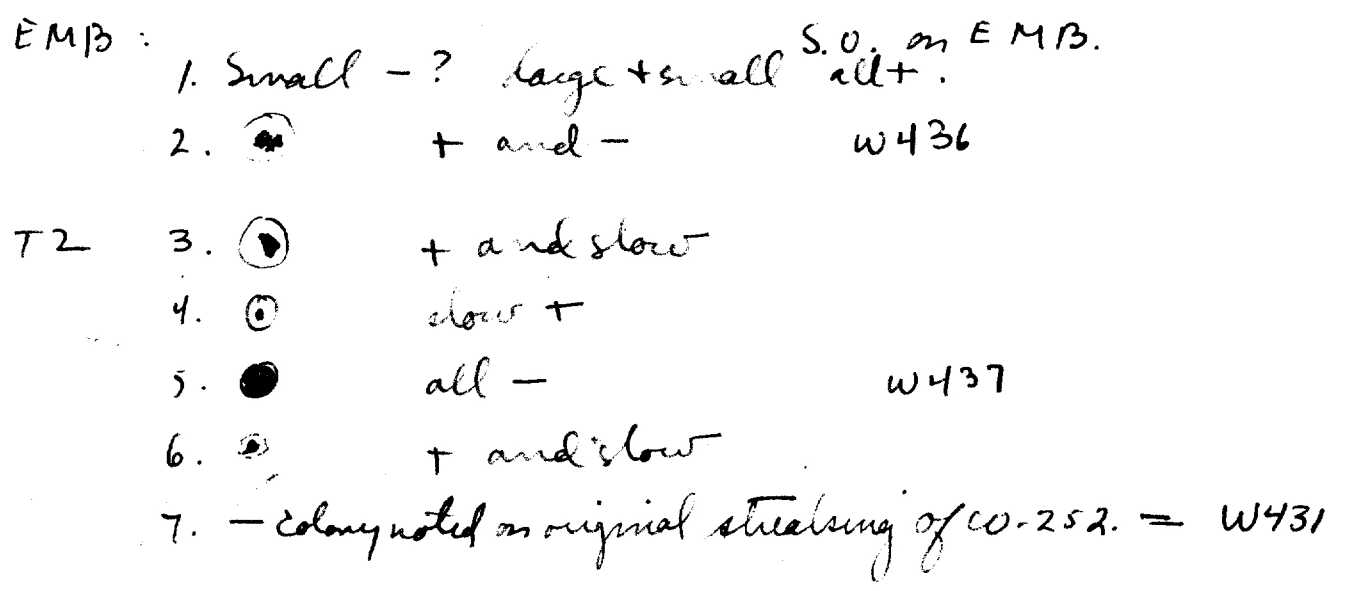 EMB :
S.O. on EMB.
1. Small - ? large + small all + .
2. + and - W436
T2 3. + and slow
4. slow +
5. all - W437
6. + and slow
7. - colony noted on original streaking of W-252. = W431